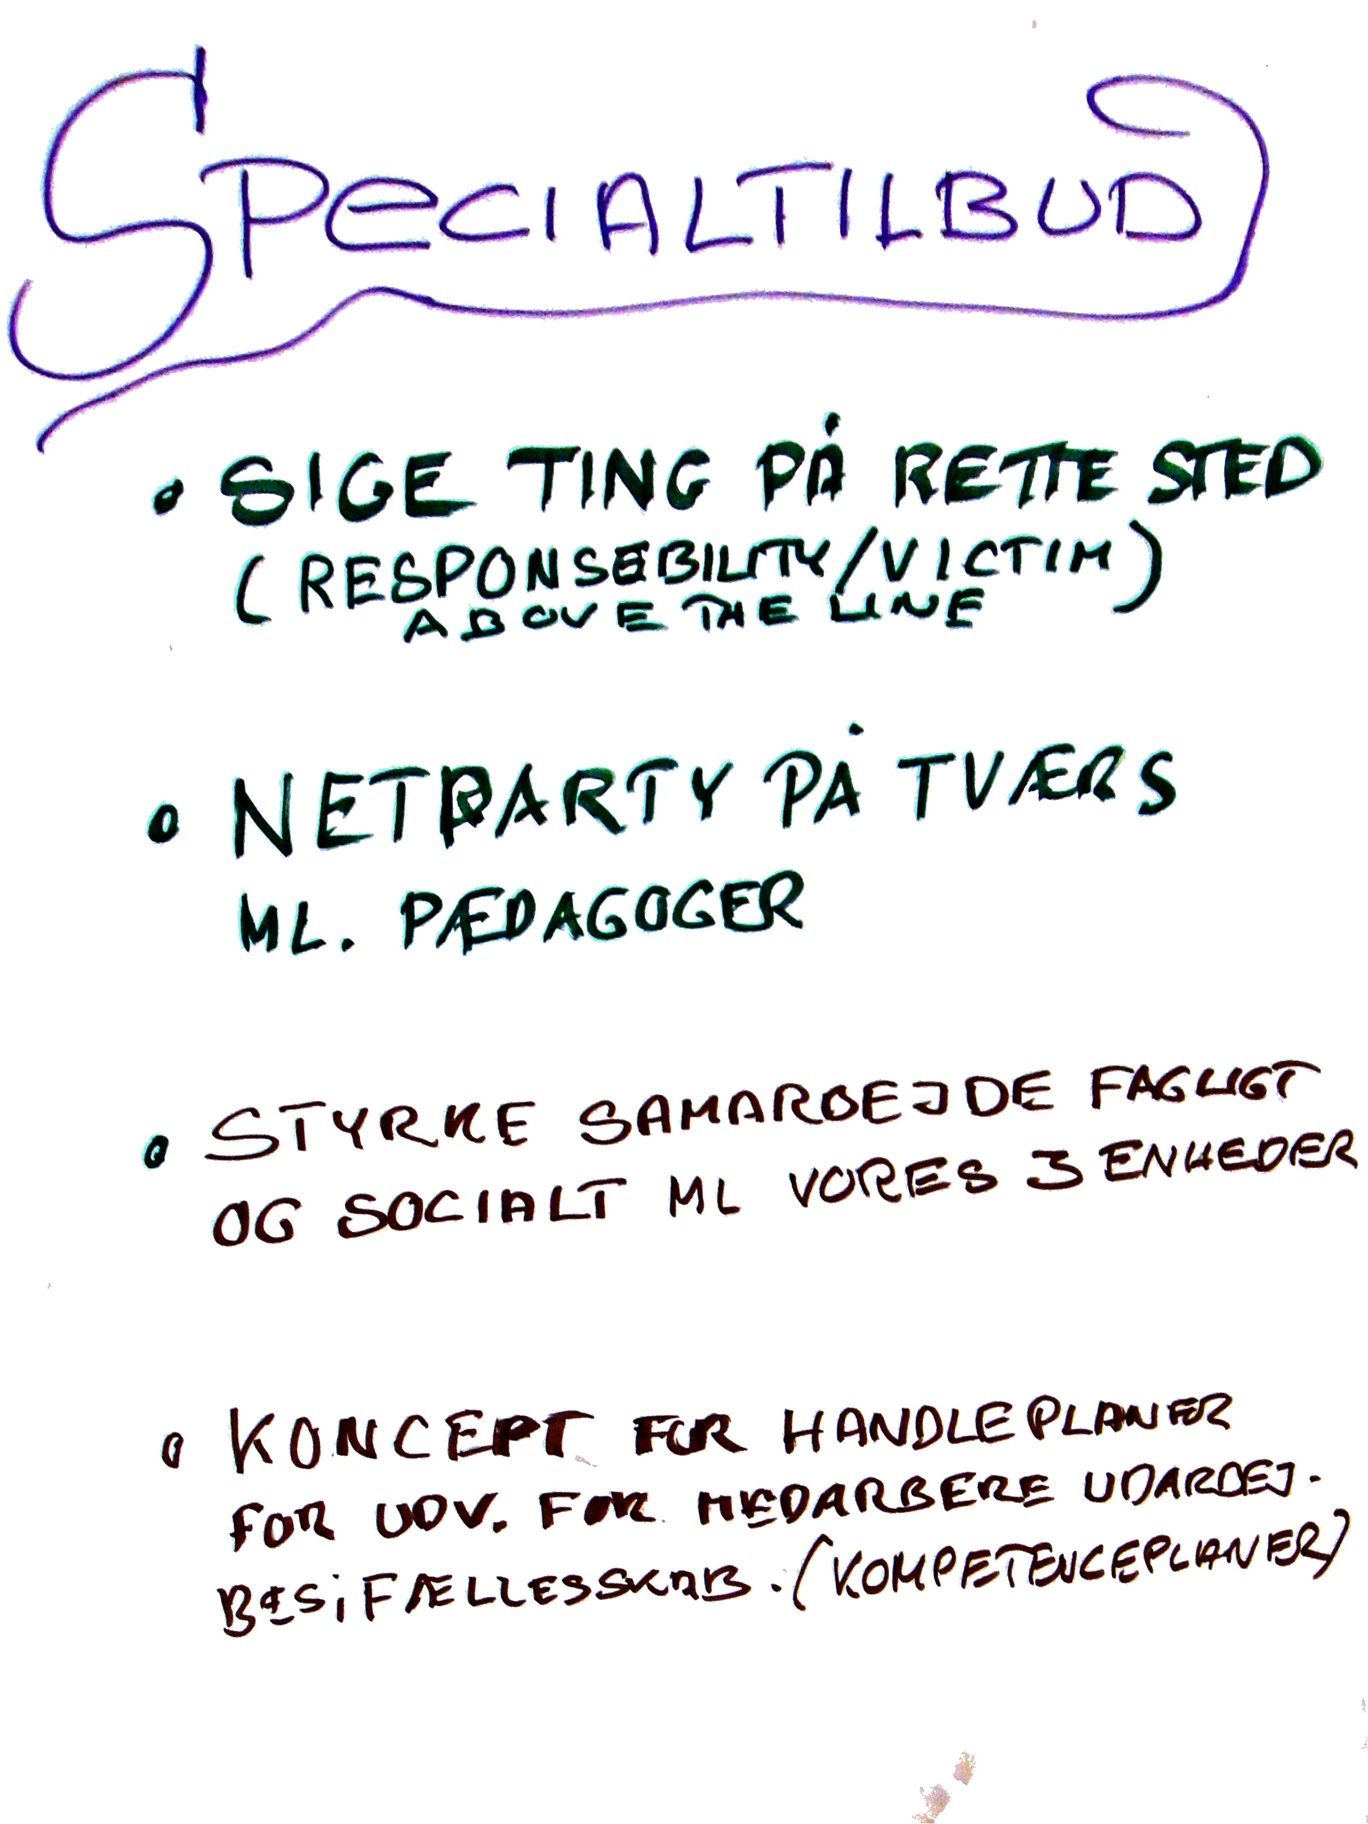 SPECIALTILBUD
• SIGE TING PÅ RETTE STED
(RESPONSEBILITY/VICTIM)
ABOVE THE LINE
• NETPARTY PÅ TVÆRS
ML. PÆDAGOGER
• STYRKE SAMARBEJDE FAGLIGT
OG SOCIALT ML VORES 3 ENHEDER
• KONCEPT FOR HANDLEPLANER
FOR UDV. FOR MEDARBERE UDARBEJ-
BES i FÆLLESSKAB. (KOMPETENCEPLANER)